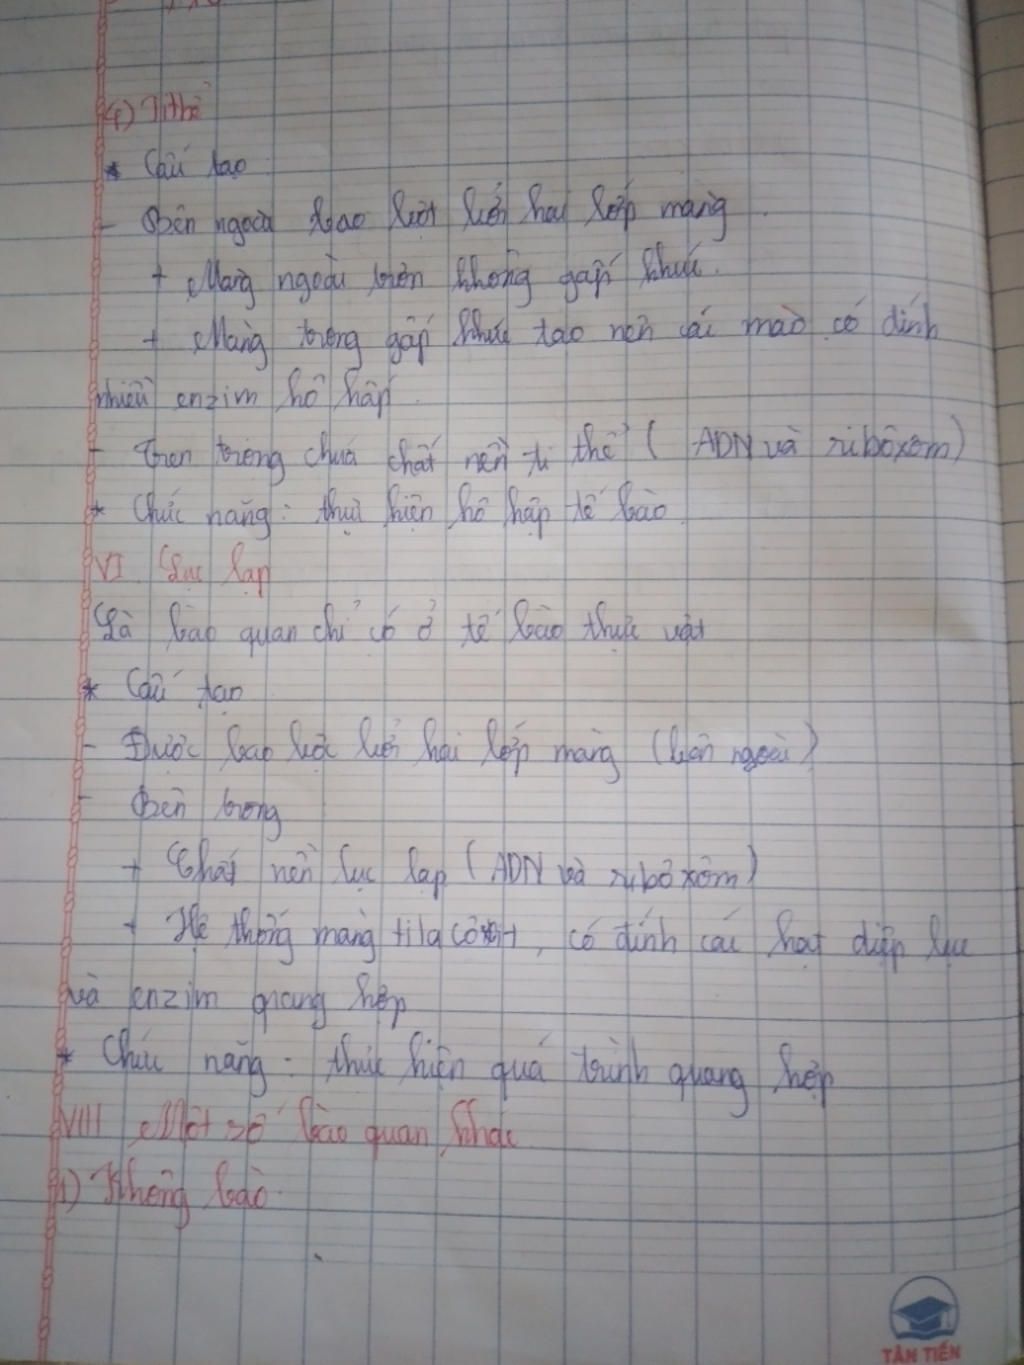 4) Ti thể
* Cấu tạo
- Bên ngoài bao bọc bởi hai lớp màng
+ Màng ngoài trơn không gấp khúc.
+ Màng trong gấp khúc tạo nên cái mào có đính
nhiều enzim hô hấp.
- Bên trong chứa chất nền ti thể ( ADN và ribôxôm)
* Chức năng: thực hiện hô hấp tế bào
VI. Lục lạp
Là bào quan chỉ có ở tế bào thực vật
* Cấu tạo
- Được bao bọc bởi hai lớp màng (bên ngoài)
- Bên trong
+ Chất nền lục lạp ( ADN và ribôxôm)
+ Hệ thống màng tilacôit, có đính các hạt diệp lục
và enzim quang hợp
* Chức năng: thực hiện quá trình quang hợp
VIII Một số bào quan khác
1) Không bào.
TÂN TIẾN